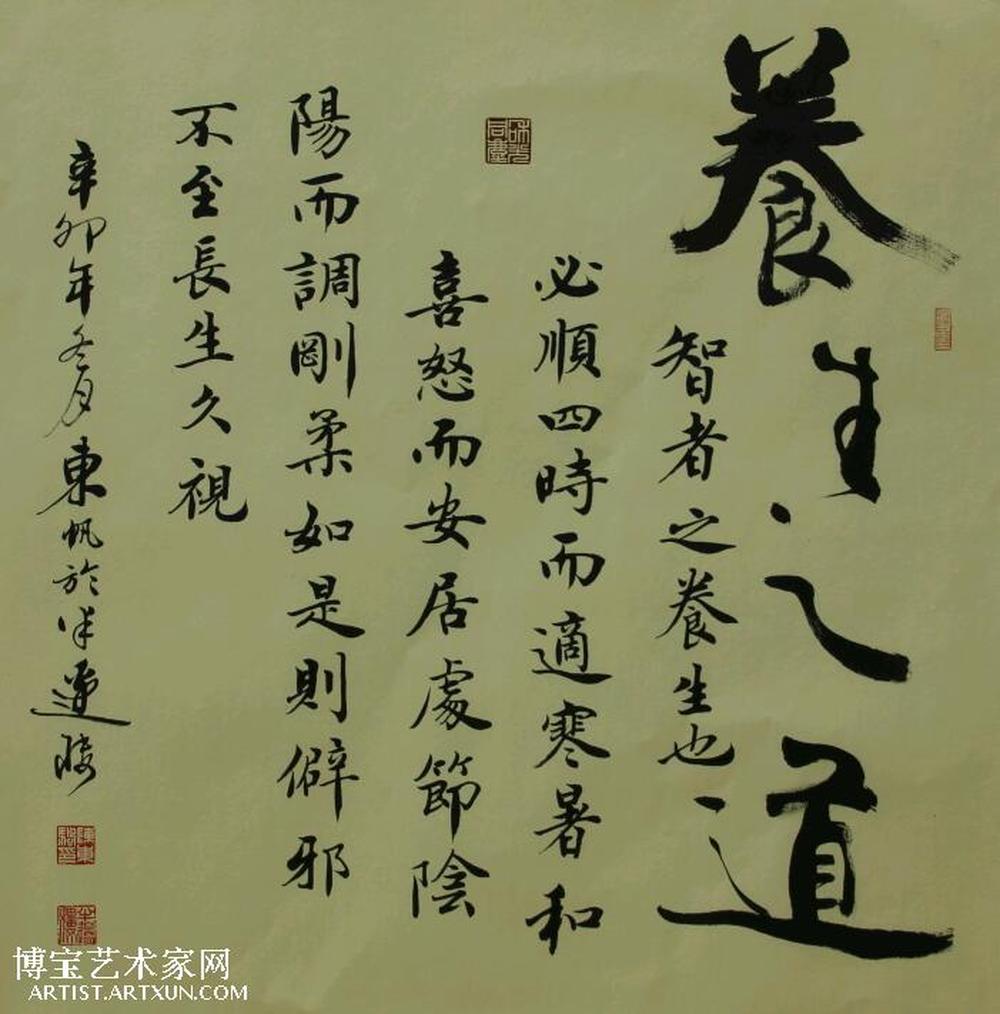 養生之道
智者之養生也
必順四時而適寒暑和
喜怒而安居處節陰
陽而調剛柔如是則僻邪
不至長生久視
辛卯年冬月東帆於半蓮
和光同塵
博宝艺术家网
ARTIST.ARTXUN.COM